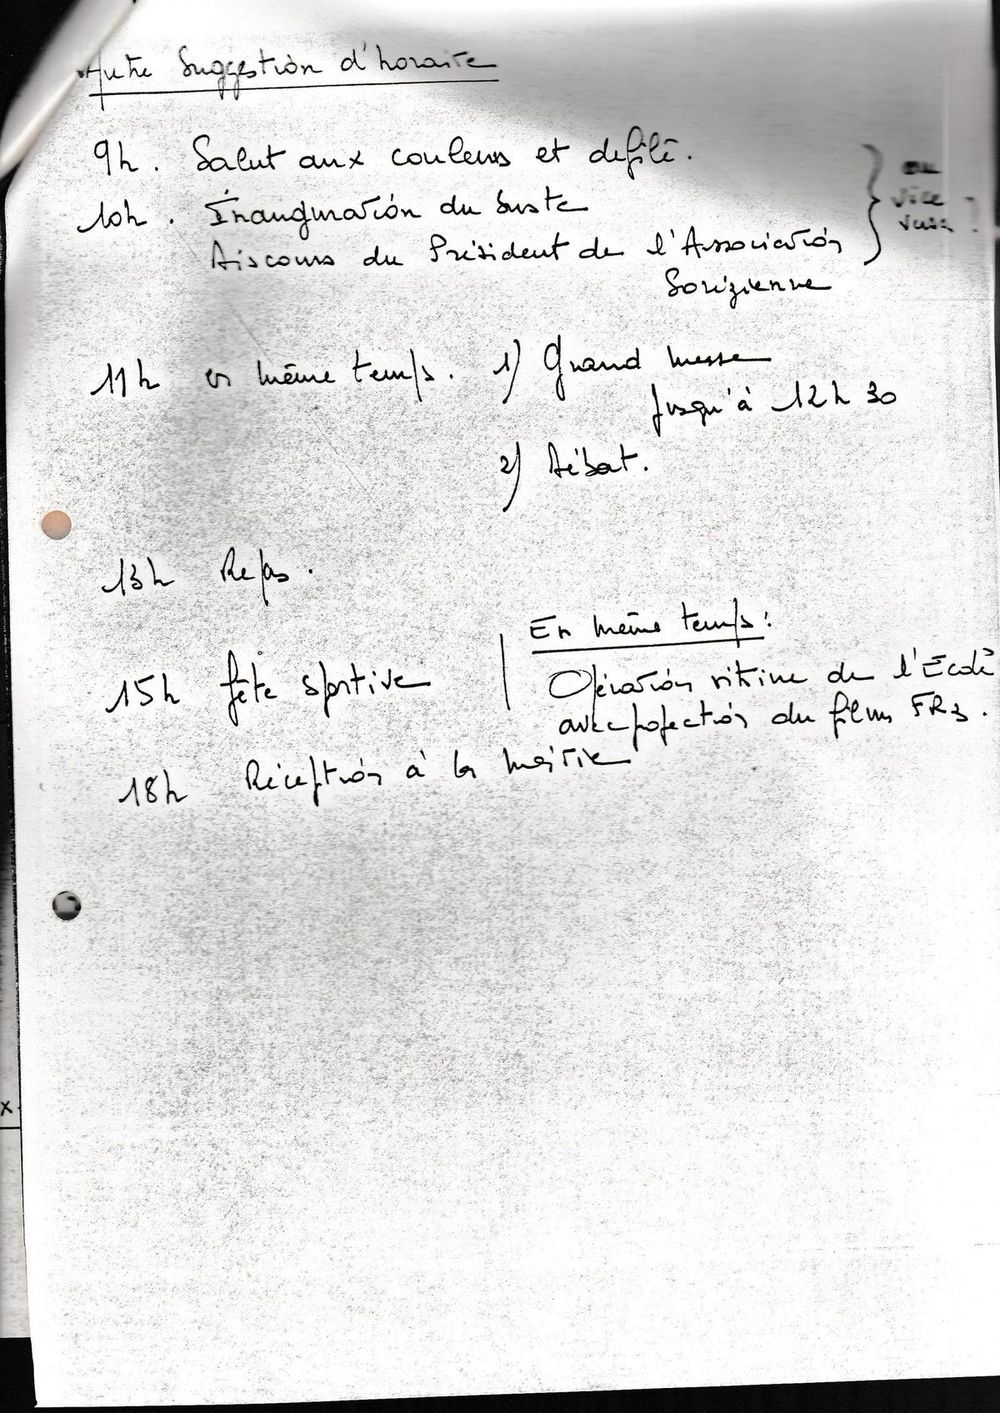 Autre Suggestion d'horaire
9h. Salut aux couleurs et defilé.
10h. Inauguration du buste
Discours du Président de l'Association
Sorézienne
} ou
vice
versa ?
11h en même temps. 1) Grand messe
jusqu'à 12h 30
2) Débat.
13h Repas.
15h fête sportive
En même temps:
Opération vitrine de l'Ecole
avec projection du film FR3.
18h Réception à la mairie
x